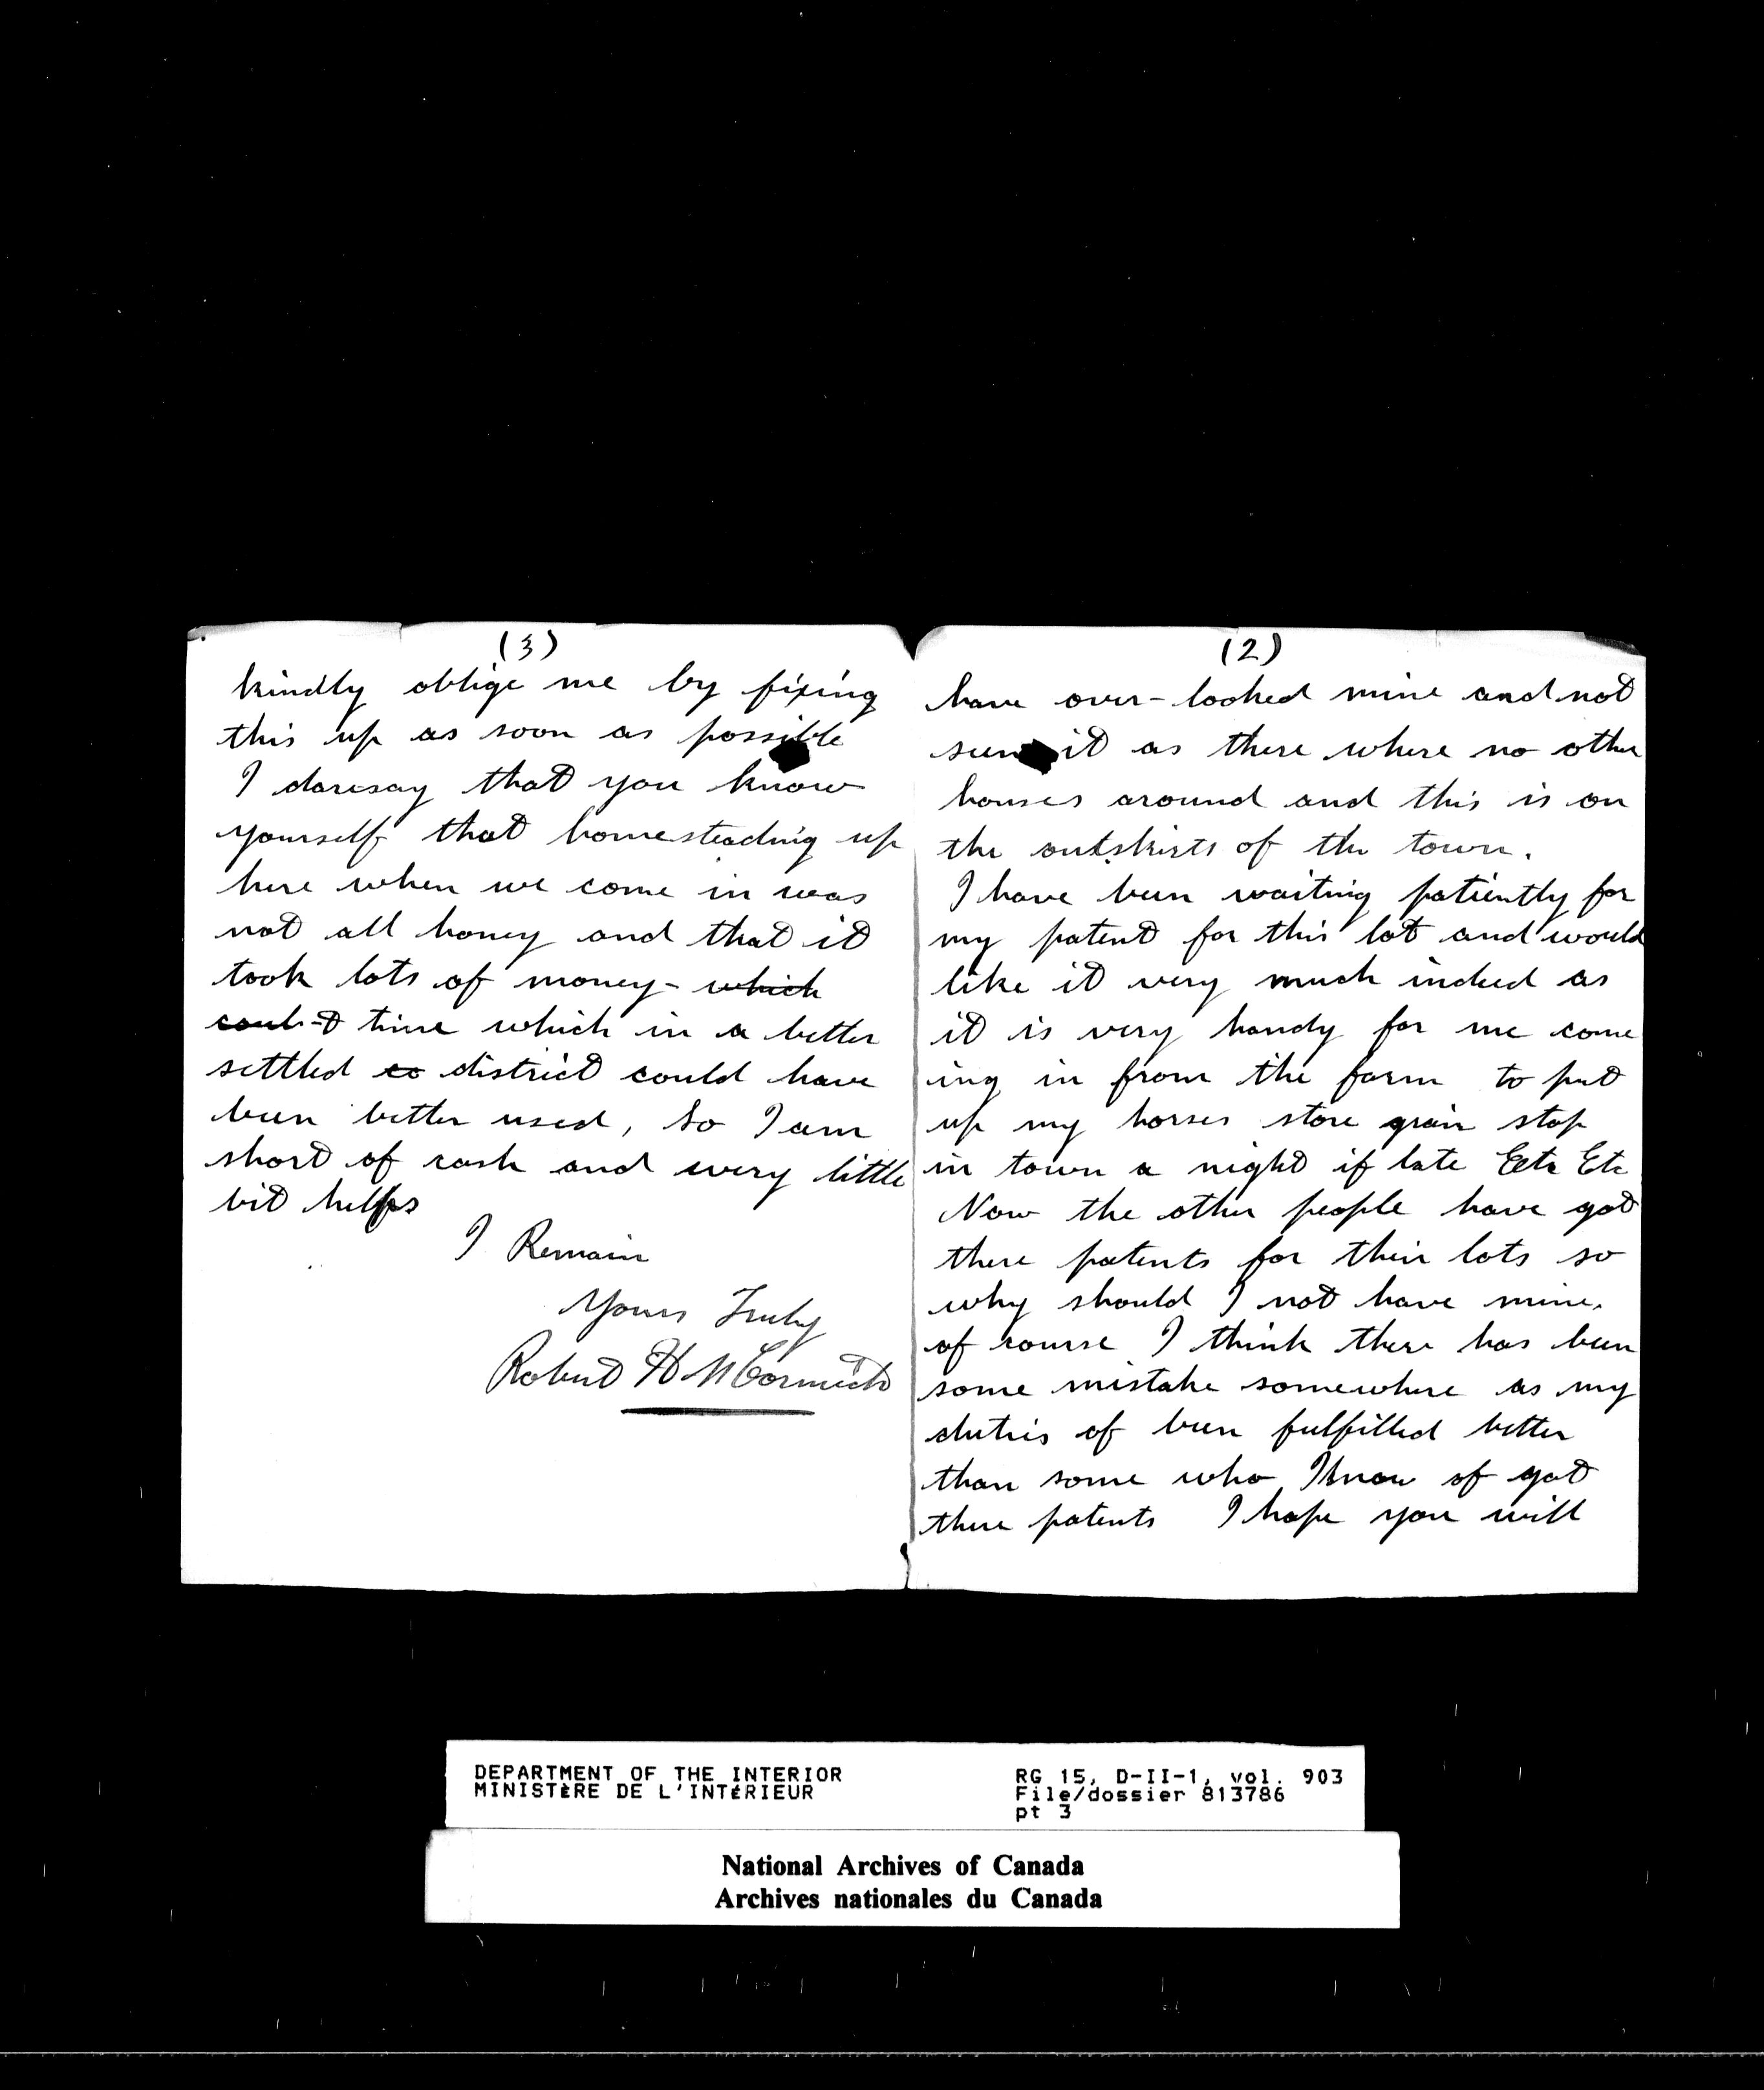 (3)
kindly oblige me by fixing
this up as soon as possible
I daresay that you know
yourself that homesteading up
here when we come in was
not all honey and that it
took lots of money - which
time which in a better
settled co district could have
been better used, so I am
short of cash and every little
bit helps
I Remain
Yours Truly
Robert H McCormick
(2)
have over-looked mine and not
seen it as there where no other
houses around and this is on
the outskirts of the town.
I have been waiting patiently for
my patent for this lot and would
like it very much indeed as
it is very handy for me come
ing in from the farm to put
up my horses store grain stop
in town a night if late Eetc Etc
Now the other people have got
there patents for their lots so
why should I not have mine.
of course I think there has been
some mistake somewhere as my
duties of been fulfilled better
than some who I know of got
there patents I hope you will
DEPARTMENT OF THE INTERIOR
MINISTÈRE DE L'INTÉRIEUR
RG 15, D-II-1, vol. 903
File/dossier 813786
pt 3
National Archives of Canada
Archives nationales du Canada